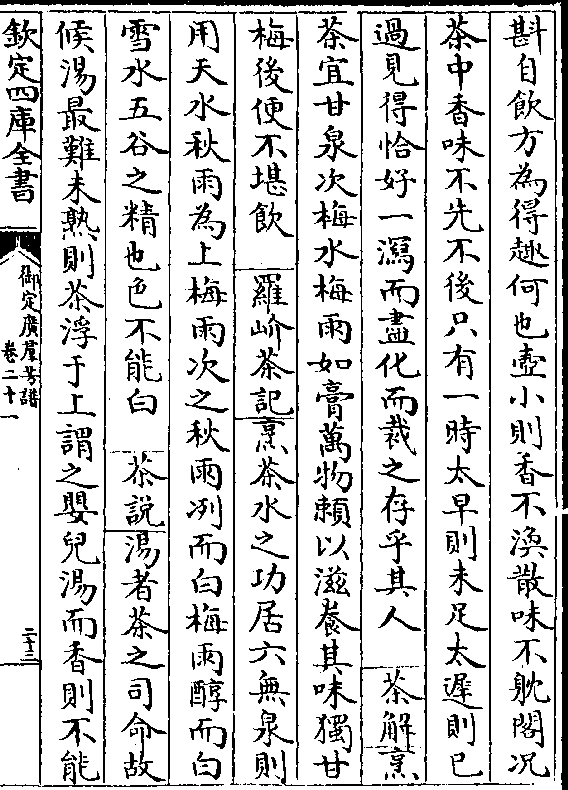 斟自飲方為得趣何也壺小則香不渙散味不躭閣况
茶中香味不先不後只有一時太早則未足太遲則已
過見得恰好一瀉而盡化而裁之存乎其人　茶解烹
茶宜甘泉次梅水梅雨如膏萬物頼以滋養其味獨甘
梅後便不堪飲　羅岕茶記烹茶水之功居六無泉則
用天水秋雨為上梅雨次之秋雨冽而白梅雨醇而白
雪水五谷之精也色不能白　茶説湯者茶之司命故
候湯最難未熟則茶浮于上謂之嬰兒湯而香則不能
欽定四庫全書
御定廣羣芳譜
卷二十一
二十三